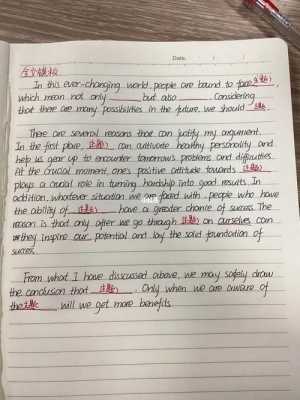 Date. / /
全文模板
In this ever-changing world, people are bound to face 主题1,
which mean not only ____ but also ____. Considering
that there are many possibilities in the future, we should 主题.
There are several reasons that can justify my argument.
In the first place, 主题1 can cultivate healthy personality and
help us gear up to encounter tomorrow's problems and difficulties.
At the crucial moment, one's positive attitude towards 主题1
plays a crucial role in turning hardship into good results. In
addition, whatever situation we are faced with, people who have
the ability of 主题1 have a greater chance of success. The
reason is that only after we go through 主题1 on ourselves can
they inspire our potential and lay the solid foundation of
success.
From what I have disscussed above, we may safely draw
the conclusion that 主题1. Only when we are aware of
the主题, will we get more benefits.